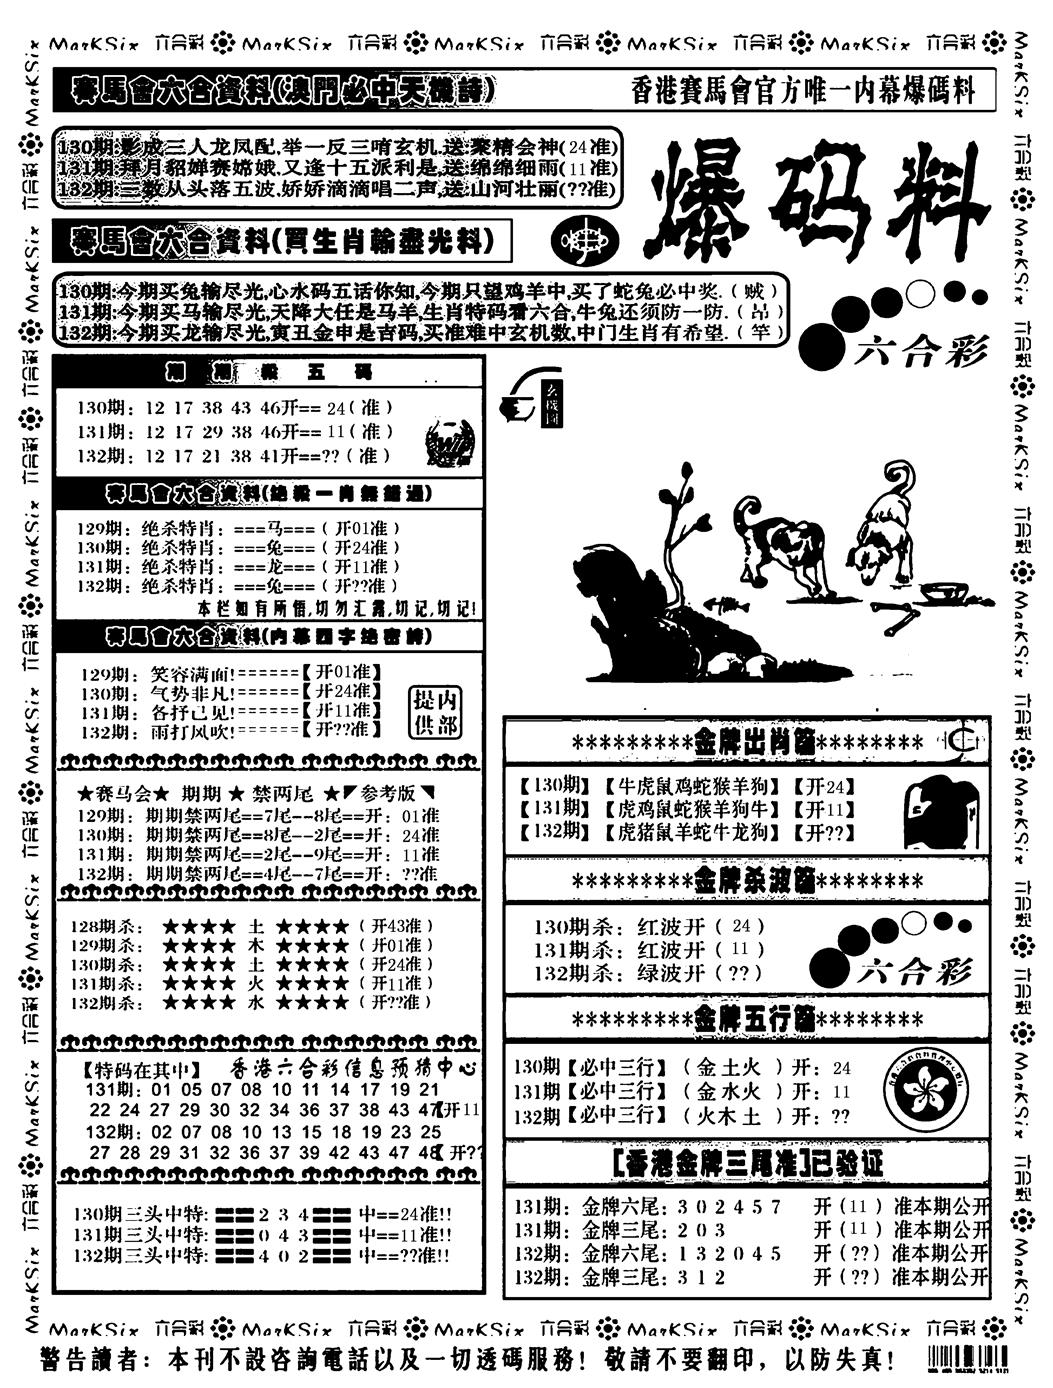 MarKSix 六合彩 MarKSix 六合彩 MarKSix 六合彩 MarKSix 六合彩 MarKSix 六合彩
賽馬會六合資料(澳門必中天機詩)
香港賽馬會官方唯一内幕爆碼料
130期:影成三人龙凤配,举一反三哨玄机,送:聚精会神(24准)
131期:拜月貂婵赛嫦娥,又逢十五派利是,送:绵绵细雨(11准)
132期:三数从头落五波,娇娇滴滴唱二声,送:山河壮丽(??准)
爆码料
賽馬會六合資料(買生肖輸盡光料)
130期:今期买兔输尽光,心水码五话你知,今期只望鸡羊中,买了蛇兔必中奖.(贼)
131期:今期买马输尽光,天降大任是马羊,生肖特码看六合,牛兔还须防一防.(昂)
132期:今期买龙输尽光,寅丑金申是吉码,买准难中玄机数,中门生肖有希望.(竿)
六合彩
期期殺五碼
130期: 12 17 38 43 46开== 24(准)
131期: 12 17 29 38 46开== 11(准)
132期: 12 17 21 38 41开==??(准)
玄機圖
賽馬會六合資料(绝殺一肖無錯過)
129期: 绝杀特肖: ===马===(开01准)
130期: 绝杀特肖: ===兔===(开24准)
131期: 绝杀特肖: ===龙===(开11准)
132期: 绝杀特肖: ===兔===(开??准)
本栏如有所悟,切勿汇露,切记,切记!
賽馬會六合資料(内幕四字绝密詩)
129期: 笑容满面!======【开01准】
130期: 气势非凡!======【开24准】
131期: 各抒己见!======【开11准】
132期: 雨打风吹!======【开??准】
提供内部
★赛马会★ 期期 ★ 禁两尾 ★参考版
129期: 期期禁两尾==7尾--8尾==开: 01准
130期: 期期禁两尾==8尾--2尾==开: 24准
131期: 期期禁两尾==2尾--9尾==开: 11准
132期: 期期禁两尾==4尾--7尾==开: ??准
128期杀: ★★★★ 土 ★★★★(开43准)
129期杀: ★★★★ 木 ★★★★(开01准)
130期杀: ★★★★ 土 ★★★★(开24准)
131期杀: ★★★★ 火 ★★★★(开11准)
132期杀: ★★★★ 水 ★★★★(开??准)
【特码在其中】 香港六合彩信息预猜中心
131期: 01 05 07 08 10 11 14 17 19 21
22 24 27 29 30 32 34 36 37 38 43 47【开11
132期: 02 07 08 10 13 15 18 19 23 25
27 28 29 31 32 36 37 39 42 43 47 48【开??
130期三头中特: 2 3 4 中==24准!!
131期三头中特: 0 4 3 中==11准!!
132期三头中特: 4 0 2 中==??准!!
*********金牌出肖篇********
【130期】【牛虎鼠鸡蛇猴羊狗】【开24】
【131期】【虎鸡鼠蛇猴羊狗牛】【开11】
【132期】【虎猪鼠羊蛇牛龙狗】【开??】
*********金牌杀波篇********
130期杀: 红波开(24)
131期杀: 红波开(11)
132期杀: 绿波开(??)
六合彩
*********金牌五行篇********
130期【必中三行】(金土火)开: 24
131期【必中三行】(金水火)开: 11
132期【必中三行】(火木土)开: ??
[香港金牌三尾准]已验证
131期: 金牌六尾: 3 0 2 4 5 7 开(11)准本期公开
131期: 金牌三尾: 2 0 3 开(11)准本期公开
132期: 金牌六尾: 1 3 2 0 4 5 开(??)准本期公开
132期: 金牌三尾: 3 1 2 开(??)准本期公开
MarKSix 六合彩 MarKSix 六合彩 MarKSix 六合彩 MarKSix 六合彩 MarKSix 六合彩
警告讀者: 本刊不設咨詢電話以及一切透碼服務! 敬請不要翻印, 以防失真!